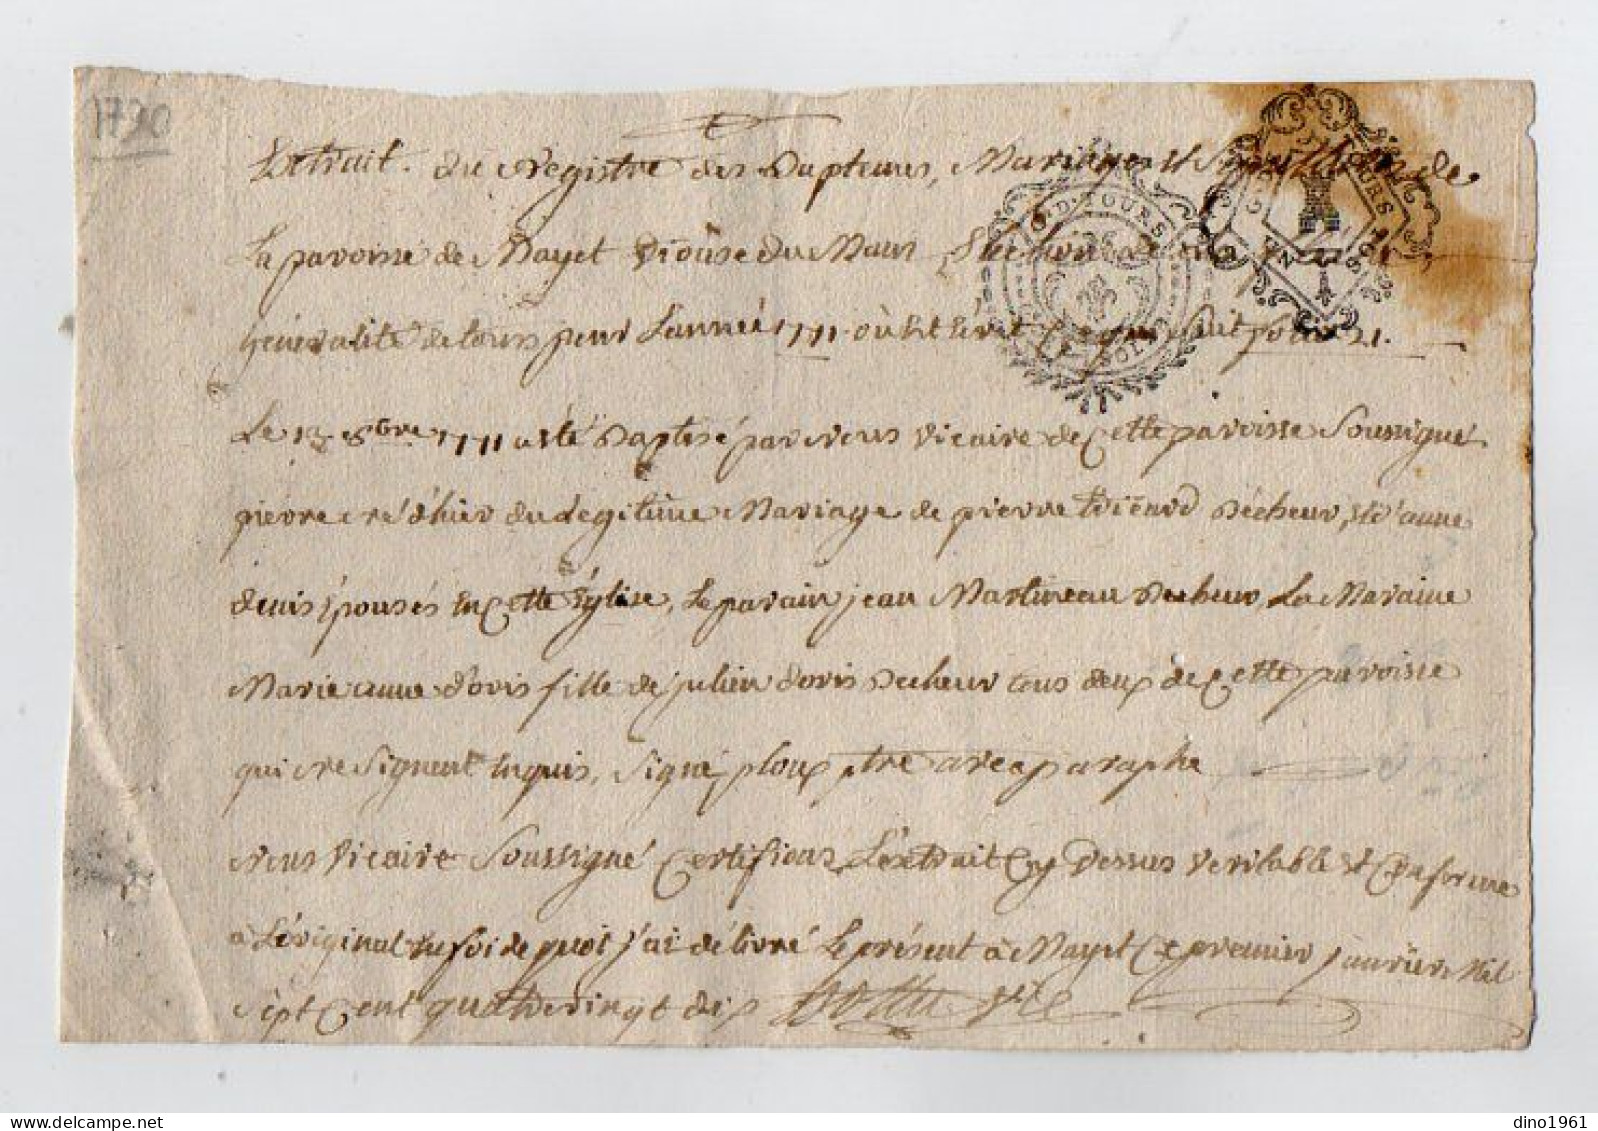 1790
Extrait du Registre des Baptemes, Mariages et Sepultures de
la paroisse de Mayet Diocèse du Mans
GEND. TOURS
TOURS
généralité de tours pour L'année 1771 où Est Ecrit ce qui suit folio 21.
Le 13 8bre 1771 a été Baptisé par nous vicaire de Cette paroisse Soussigné
pierre né d'hier du Légitime Mariage de pierre Bêcheur, et d'anne
Epousés En Cette Eglise, Le parain jean Martineau Bêcheur, La Maraine
Marie anne d'oris fille de julien d'oris Bêcheur tous deux de Cette paroisse
qui ne Signent Enquis, Signé ploux ptre avec paraphe
nous Vicaire Soussigné Certifions L'extrait Cy Dessus veritable et Conforme
à L'original En foi de quoi j'ai délivré Le présent à Mayet Ce premier janvier Mil
Sept Cent quatre vingt dix
dino1961